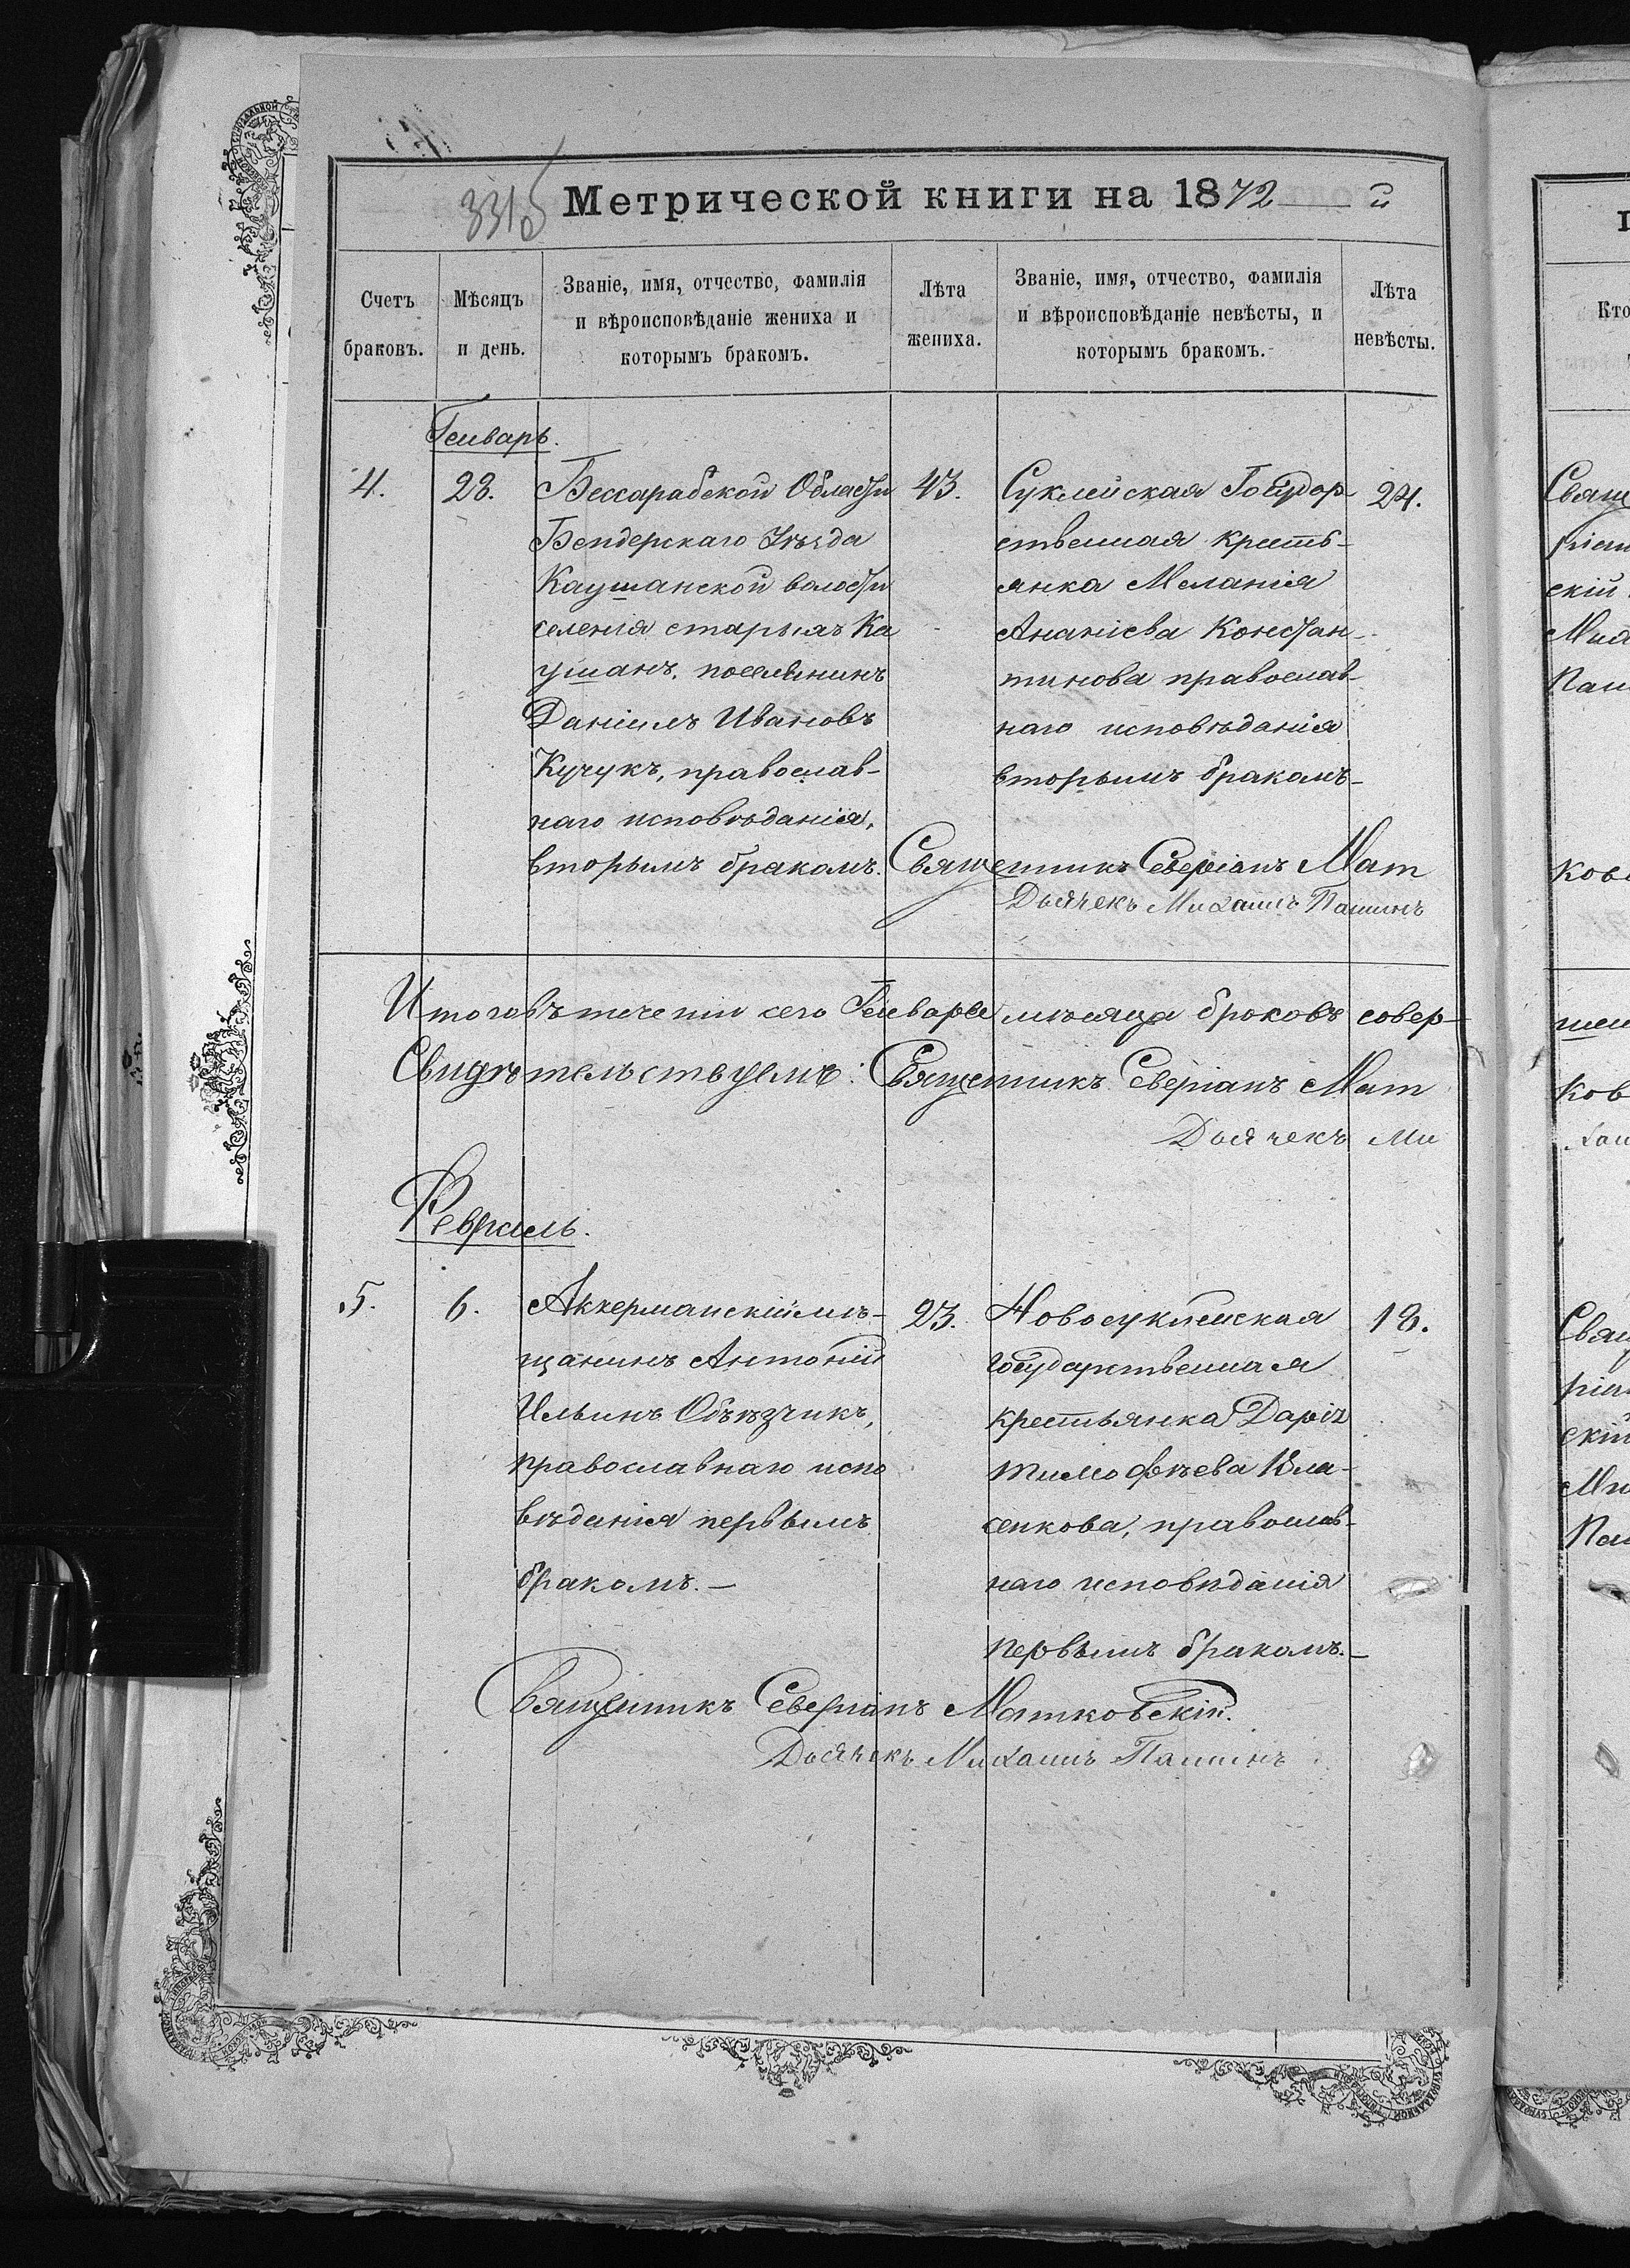 3315
Метрической книги на 1872
Счетъ браковъ.
Мѣсяцъ и день.
Званіе, имя, отчество, фамилія и вѣроисповѣданіе жениха и которымъ бракомъ.
Лѣта жениха.
Званіе, имя, отчество, фамилія и вѣроисповѣданіе невѣсты, и которымъ бракомъ.
Лѣта невѣсты.
Генварь.
4.
28.
Бессарабской Области
Бендерскаго Уѣзда
Каушанской волости
селенія старыхъ Ка
ушанъ, поселянинъ
Даніилъ Ивановъ
Кучукъ, православ-
наго исповѣданія,
вторымъ бракомъ.
43.
Суклейская Государ-
ственная кресть-
янка Меланія
Ананіева Констан-
тинова православ-
наго исповѣданія
вторымъ бракомъ-
24.
Священникъ Северіанъ Мат
Дьячекъ Михаилъ Пашинъ
Итого въ теченіи сего Генваря мѣсяца браковъ совер-
Свидѣтельствуемъ: Священникъ Северіанъ Мат
Дьячекъ Ми
Февраль.
5.
6.
Аккерманскій мѣ-
щанинъ Антоній
Ильинъ Объѣзчикъ,
православнаго испо
вѣданія первымъ
бракомъ.—
23.
Новосуклейская
государственная
крестьянка Дарія
Тимофѣева Вла-
сенкова, православ-
наго исповѣданія
первымъ бракомъ.—
18.
Священникъ Северіанъ Матковскій.
Дьячекъ Михаилъ Пашинъ
Кто
Свящ
ріан
скій
Миха
Паш
ков
шен
ков
хаи
Свящ
ріан
скій
Ми
Паш